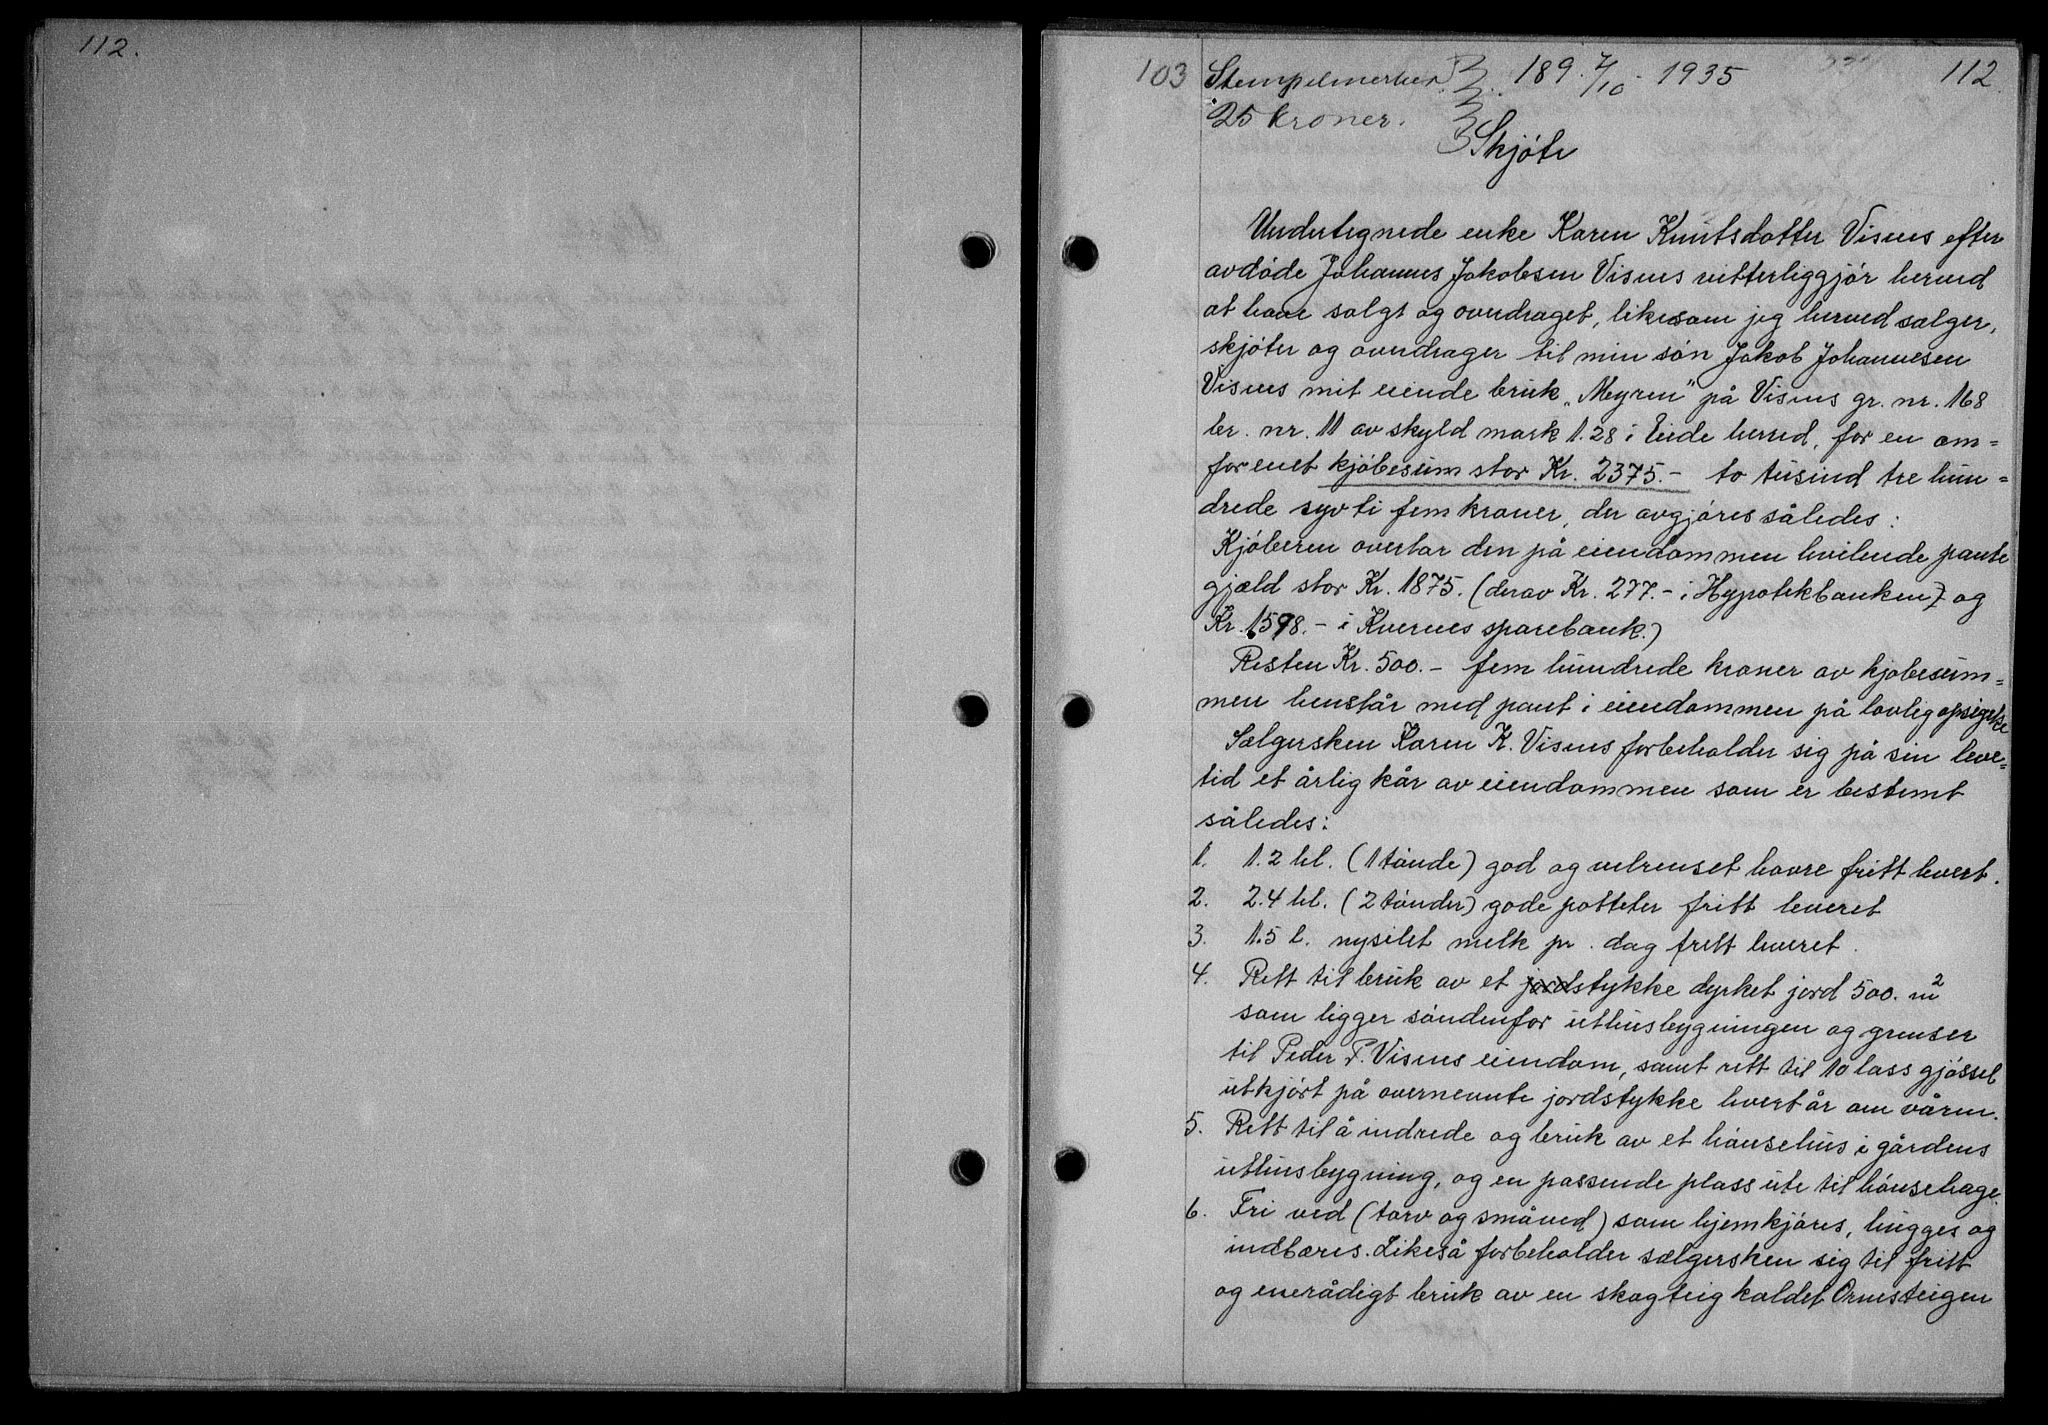 112.
103 Stempelmerker 189. 7/10 - 1935 112
25 kroner.
Skjöte
Undertegnede enke Karen Knutsdatter Visnes efter
avdöde Johannes Jakobsen Visnes vitterliggjör herved
at have solgt og overdraget, likesom jeg herved sælger,
skjöter og overdrager til min sön Jakob Johannesen
Visnes mit eiende bruk "Myren" på Visnes gr. nr. 168
br. nr. 11 av skyld mark 1.28 i Eide herred, for en om=
forenet kjöbesum stor Kr. 2375.- to tusind tre hun=
drede syv ti fem kroner, der avgjöres således:
Kjöberen overtar den på eiendommen hvilende pante
gjæld stor Kr. 1875. (derav Kr. 277.- i Hypotekbanken) og
Kr. 1598.- i Kvernes sparebank.)
Resten Kr. 500.- fem hundrede kroner av kjöbesum=
men henstår med pant i eiendommen på lovlig opsigelse
Sælgersken Karen K. Visnes forbeholder sig på sin leve=
tid et årlig kår av eiendommen som er bestemt
således:
1. 1.2 hl. (1 tönde) god og velrenset havre fritt levert.
2. 2.4 hl. (2 tönder) gode potteter fritt leveret
3. 1.5 l. nysilet melk pr. dag fritt leveret.
4. Rett til bruk av et jordstykke dyrket jord 500. m2
som ligger söndenfor uthusbygningen og grenser
til Peder P. Visnes eiendom, samt rett til 10 lass gjössel
utkjört på overnevnte jordstykke hvert år om våren.
5. Rett til å indrede og bruk av et hönsehus i gårdens
uthusbygning, og en passende plass ute til hönsehage.
6. Fri ved (torv og småved) som hjemkjöres, hugges og
indbæres. Likeså forbeholder sælgersken sig til fritt
og enerådigt bruk av en skogteig kaldet Ornesteigen